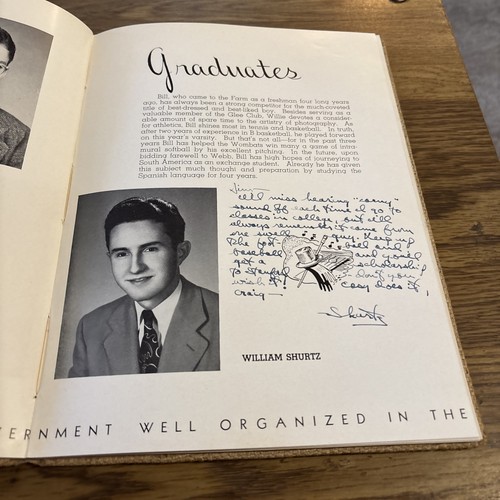 Graduates
Bill, who came to the Farm as a freshman four long years
ago, has always been a strong competitor for the much-coveted
title of best-dressed and best-liked boy. Besides serving as a
valuable member of the Glee Club, Willie devotes a consider-
able amount of spare time to the artistry of photography. As
for athletics, Bill shines most in tennis and basketball. In truth,
after two years of experience in B basketball, he played forward
on this year's varsity. But that's not all—for in the past three
years Bill has helped the Wombats win many a game of intra-
mural softball by his excellent pitching. In the future, upon
bidding farewell to Webb, Bill has high hopes of journeying to
South America as an exchange student. Already he has given
this subject much thought and preparation by studying the
Spanish language for four years.
I'll miss hearing "corny"
sound off each time I go to
classes in college, but I'll
always remember it came from
one swell guy. Keep up
the foot ball and
baseball and you'll
get a scholarship
to Stanford — don't you
wish it! easy does it,
Craig —
Shurtz
WILLIAM SHURTZ
ERNMENT WELL ORGANIZED IN THE